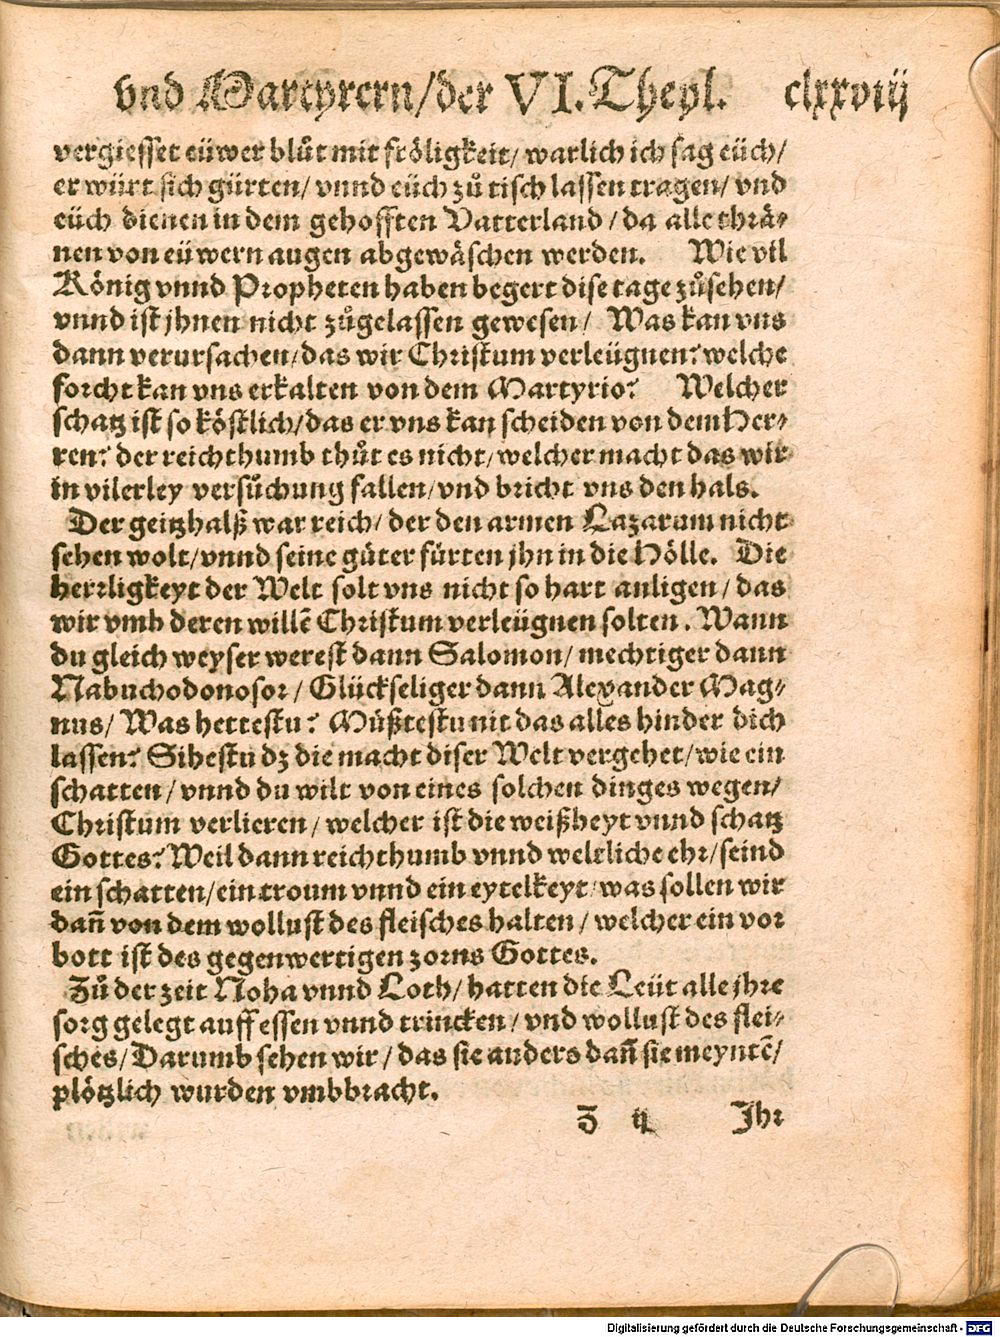 vnd Martyrern/der VI. Theyl. clxxviij
vergiesset eüwer blůt mit fröligkeit/ warlich ich sag eüch/
er würt sich gürten/ vnnd eüch zů tisch lassen tragen/ vnd
eüch dienen in dem gehofften Vatterland/ da alle thrä⸗
nen von eüwern augen abgewäschen werden. Wie vil
König vnnd Propheten haben begert dise tage zůsehen/
vnnd ist jhnen nicht zůgelassen gewesen/ Was kan vns
dann verursachen/das wir Christum verleügnen? welche
forcht kan vns erkalten von dem Martyrio? Welcher
schatz ist so köstlich/das er vns kan scheiden von dem Her⸗
ren? der reichthumb thůt es nicht/welcher macht das wir
in vilerley versůchung fallen/vnd bricht vns den hals.
Der geitzhalß war reich/ der den armen Lazarum nicht
sehen wolt/vnnd seine güter fürten jhn in die Hölle. Die
herrligkeyt der Welt solt vns nicht so hart anligen/ das
wir vmb deren willẽ Christum verleügnen solten. Wann
du gleich weyser werest dann Salomon/ mechtiger dann
Nabuchodonosor/ Glückseliger dann Alexander Mag⸗
nus/ Was hettestu? Müßtestu nit das alles hinder dich
lassen? Sihestu dz die macht diser Welt vergehet/wie ein
schatten/ vnnd du wilt von eines solchen dinges wegen/
Christum verlieren/ welcher ist die weißheyt vnnd schatz
Gottes? Weil dann reichthumb vnnd weltliche ehr/seind
ein schatten/ein troum vnnd ein eytelkeyt/was sollen wir
dañ von dem wollust des fleisches halten/ welcher ein vor
bott ist des gegenwertigen zorns Gottes.
Zů der zeit Noha vnnd Loth/ hatten die Leüt alle jhre
sorg gelegt auff essen vnnd trincken/ vnd wollust des flei⸗
sches/Darumb sehen wir/ das sie anders dañ sie meyntẽ/
plötzlich wurden vmbbracht.
Z ij Jhr
Digitalisierung gefördert durch die Deutsche Forschungsgemeinschaft - DFG